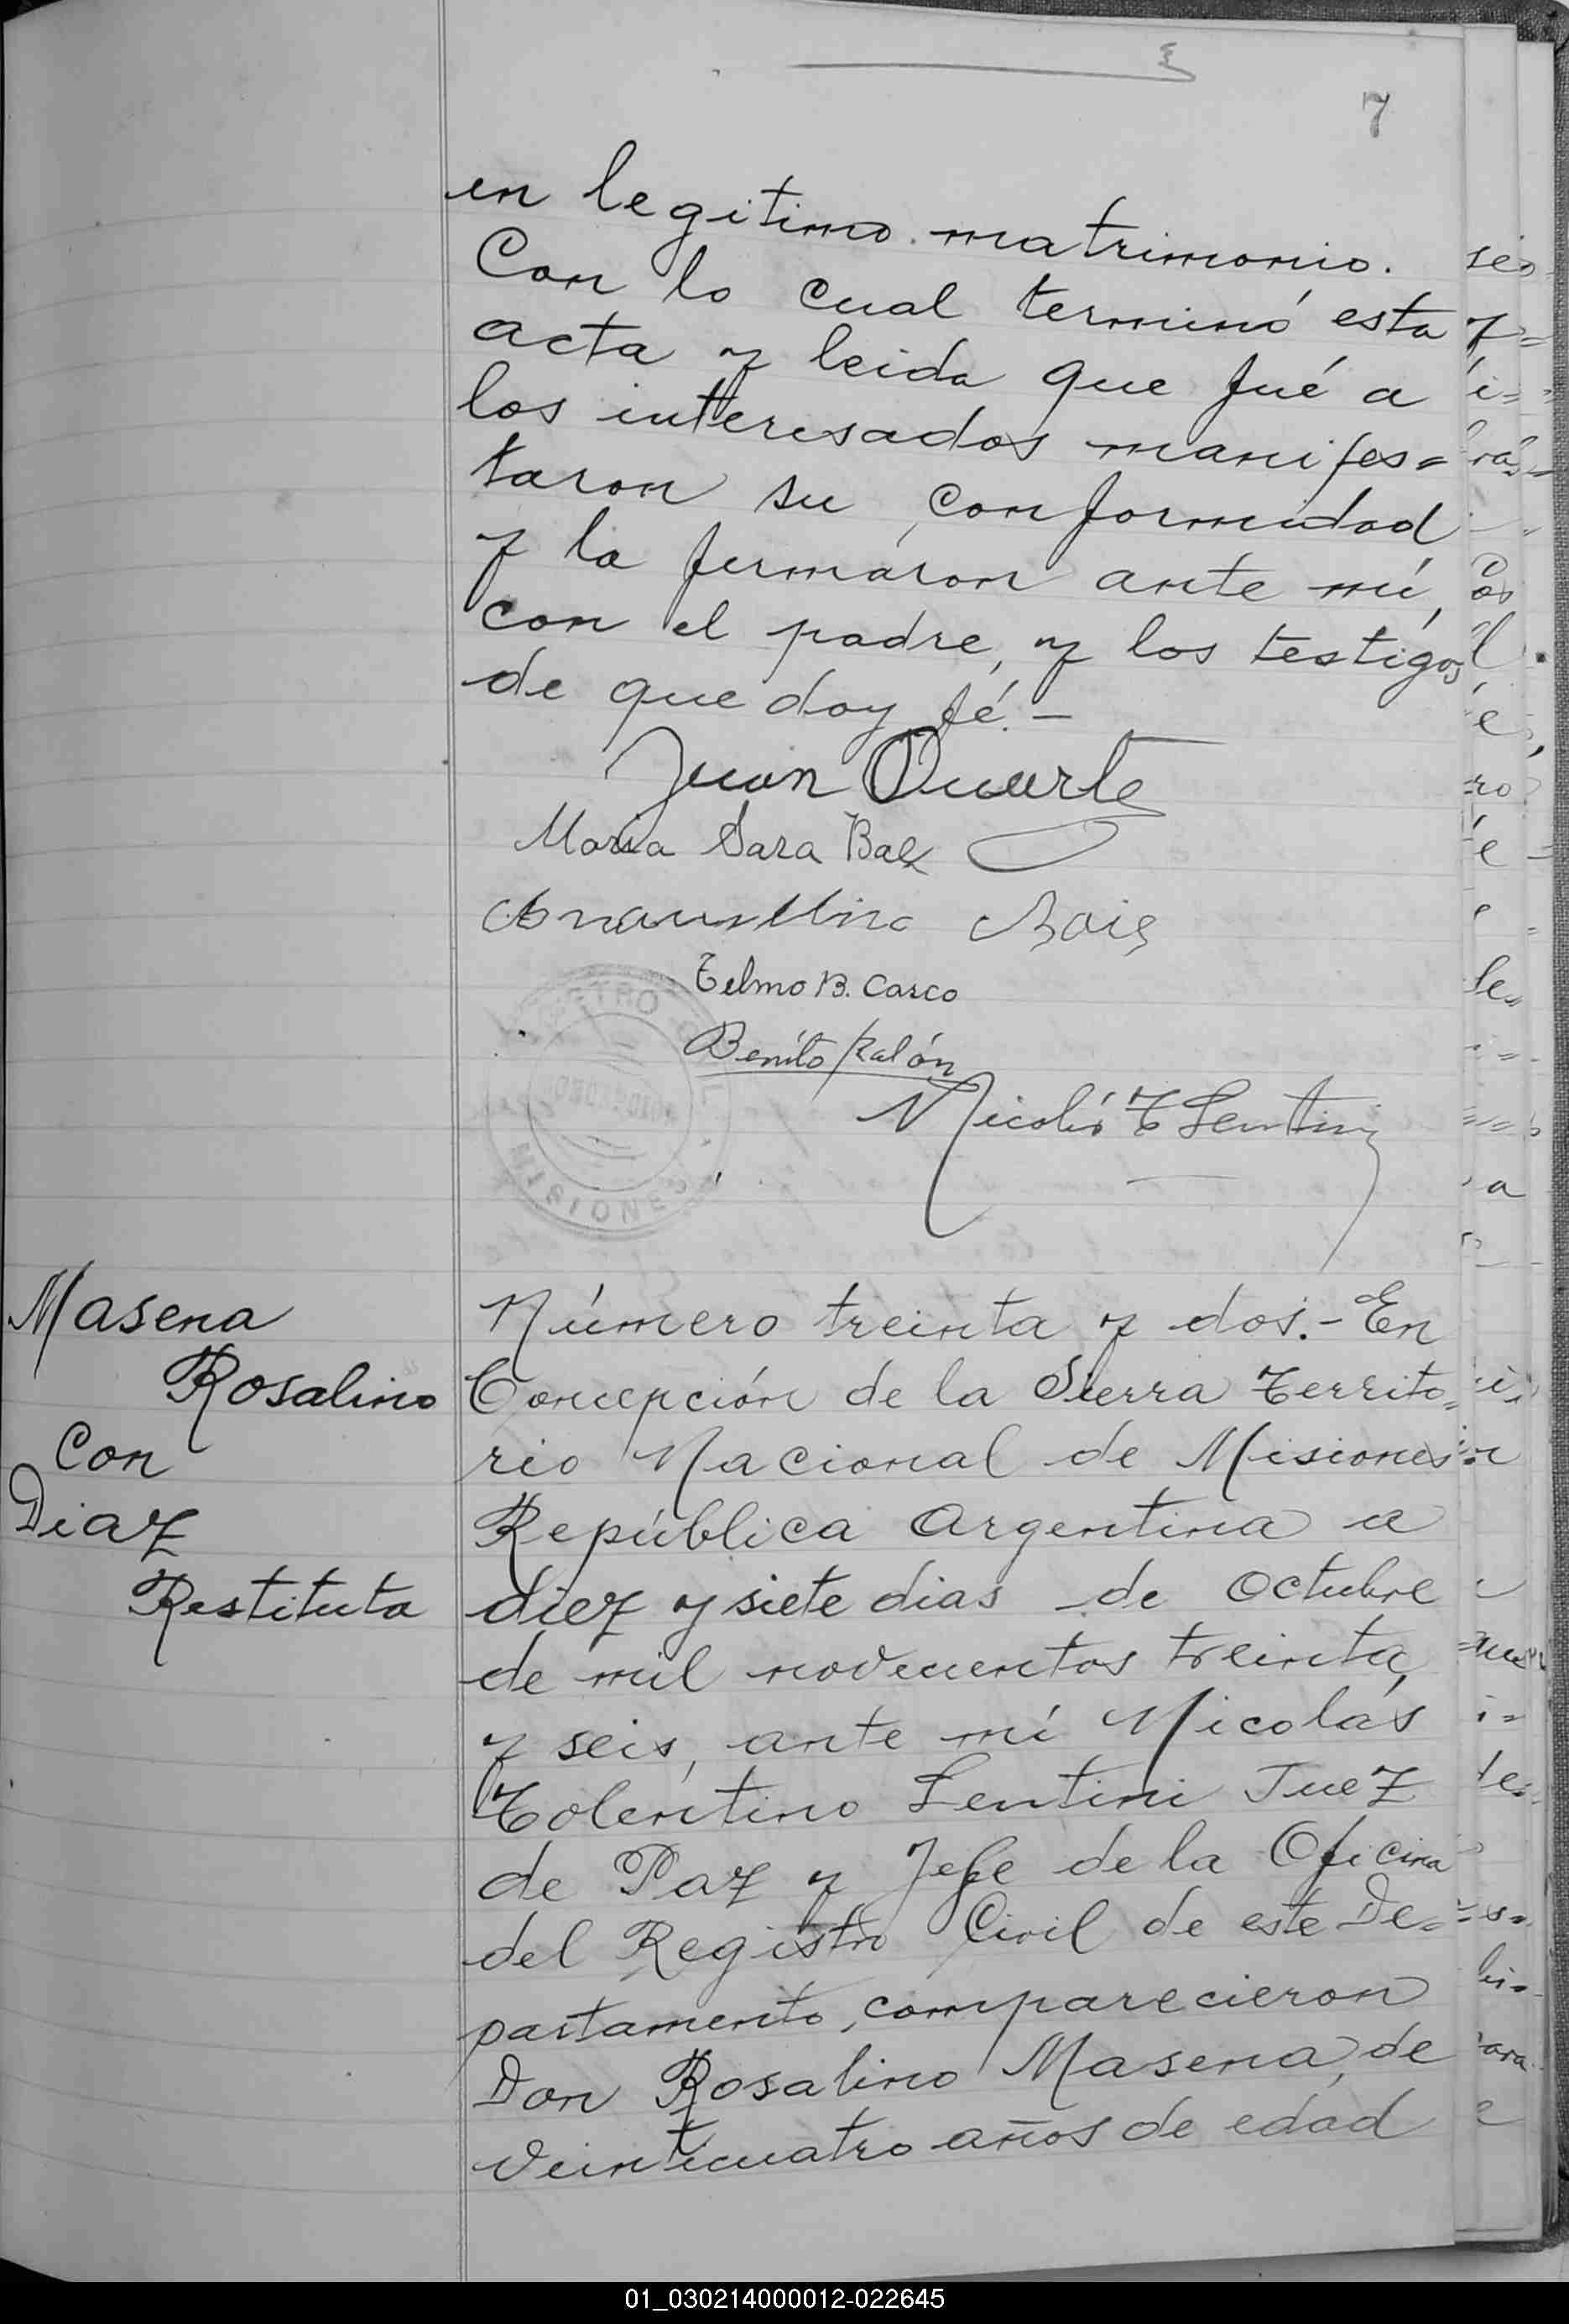 7
en legitimo matrimonio.
Con lo cual terminó esta
acta y leida que fué a
los interesados manifes=
taron su conformidad
y la firmaron ante mí,
con el padre, y los testigos
de que doy fé.-
Juan Duarte
Maria Sara Baez
Telmo B. Carco
Benito Ralón
Nicolás T Lentini
MISIONES
Masena
Rosalino
Con
Diaz
Restituta
Número treinta y dos.- En
Concepción de la Sierra Territo=
rio Nacional de Misiones
República Argentina a
diez y siete dias de Octubre
de mil novecientos treinta
y seis, ante mí Nicolás
Tolentino Lentini Juez
de Paz y Jefe de la Oficina
del Registro Civil de este De=
partamento, comparecieron
Don Rosalino Masena, de
veinticuatro años de edad
01_030214000012-022645